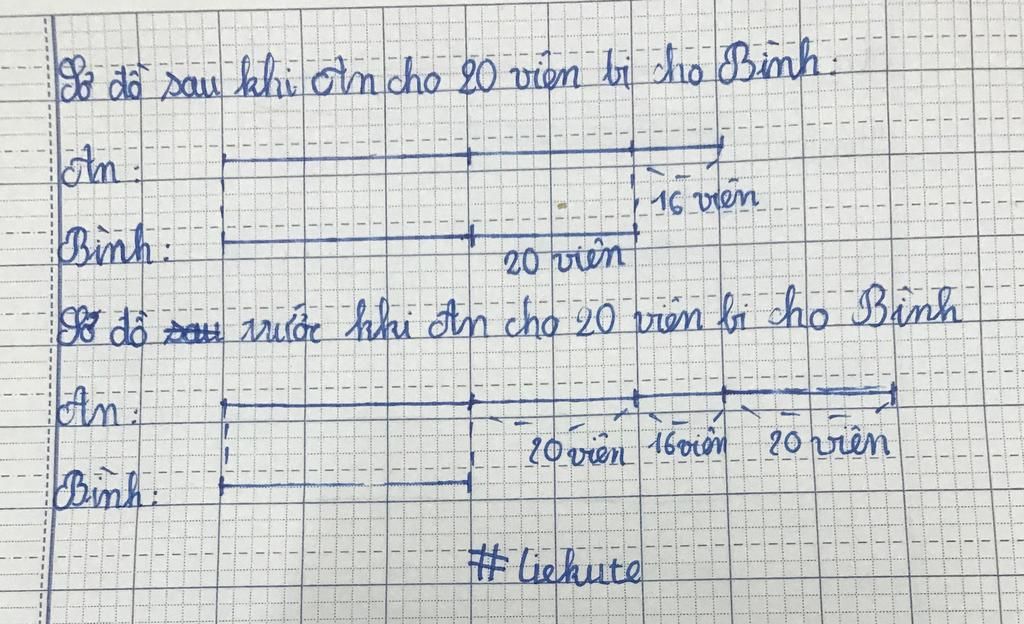 Sơ đồ sau khi An cho 20 viên bi cho Bình:
An:
16 viên
Bình:
20 viên
Sơ đồ sau trước khi An cho 20 viên bi cho Bình
An:
20 viên 16 viên 20 viên
Bình:
# Liekute